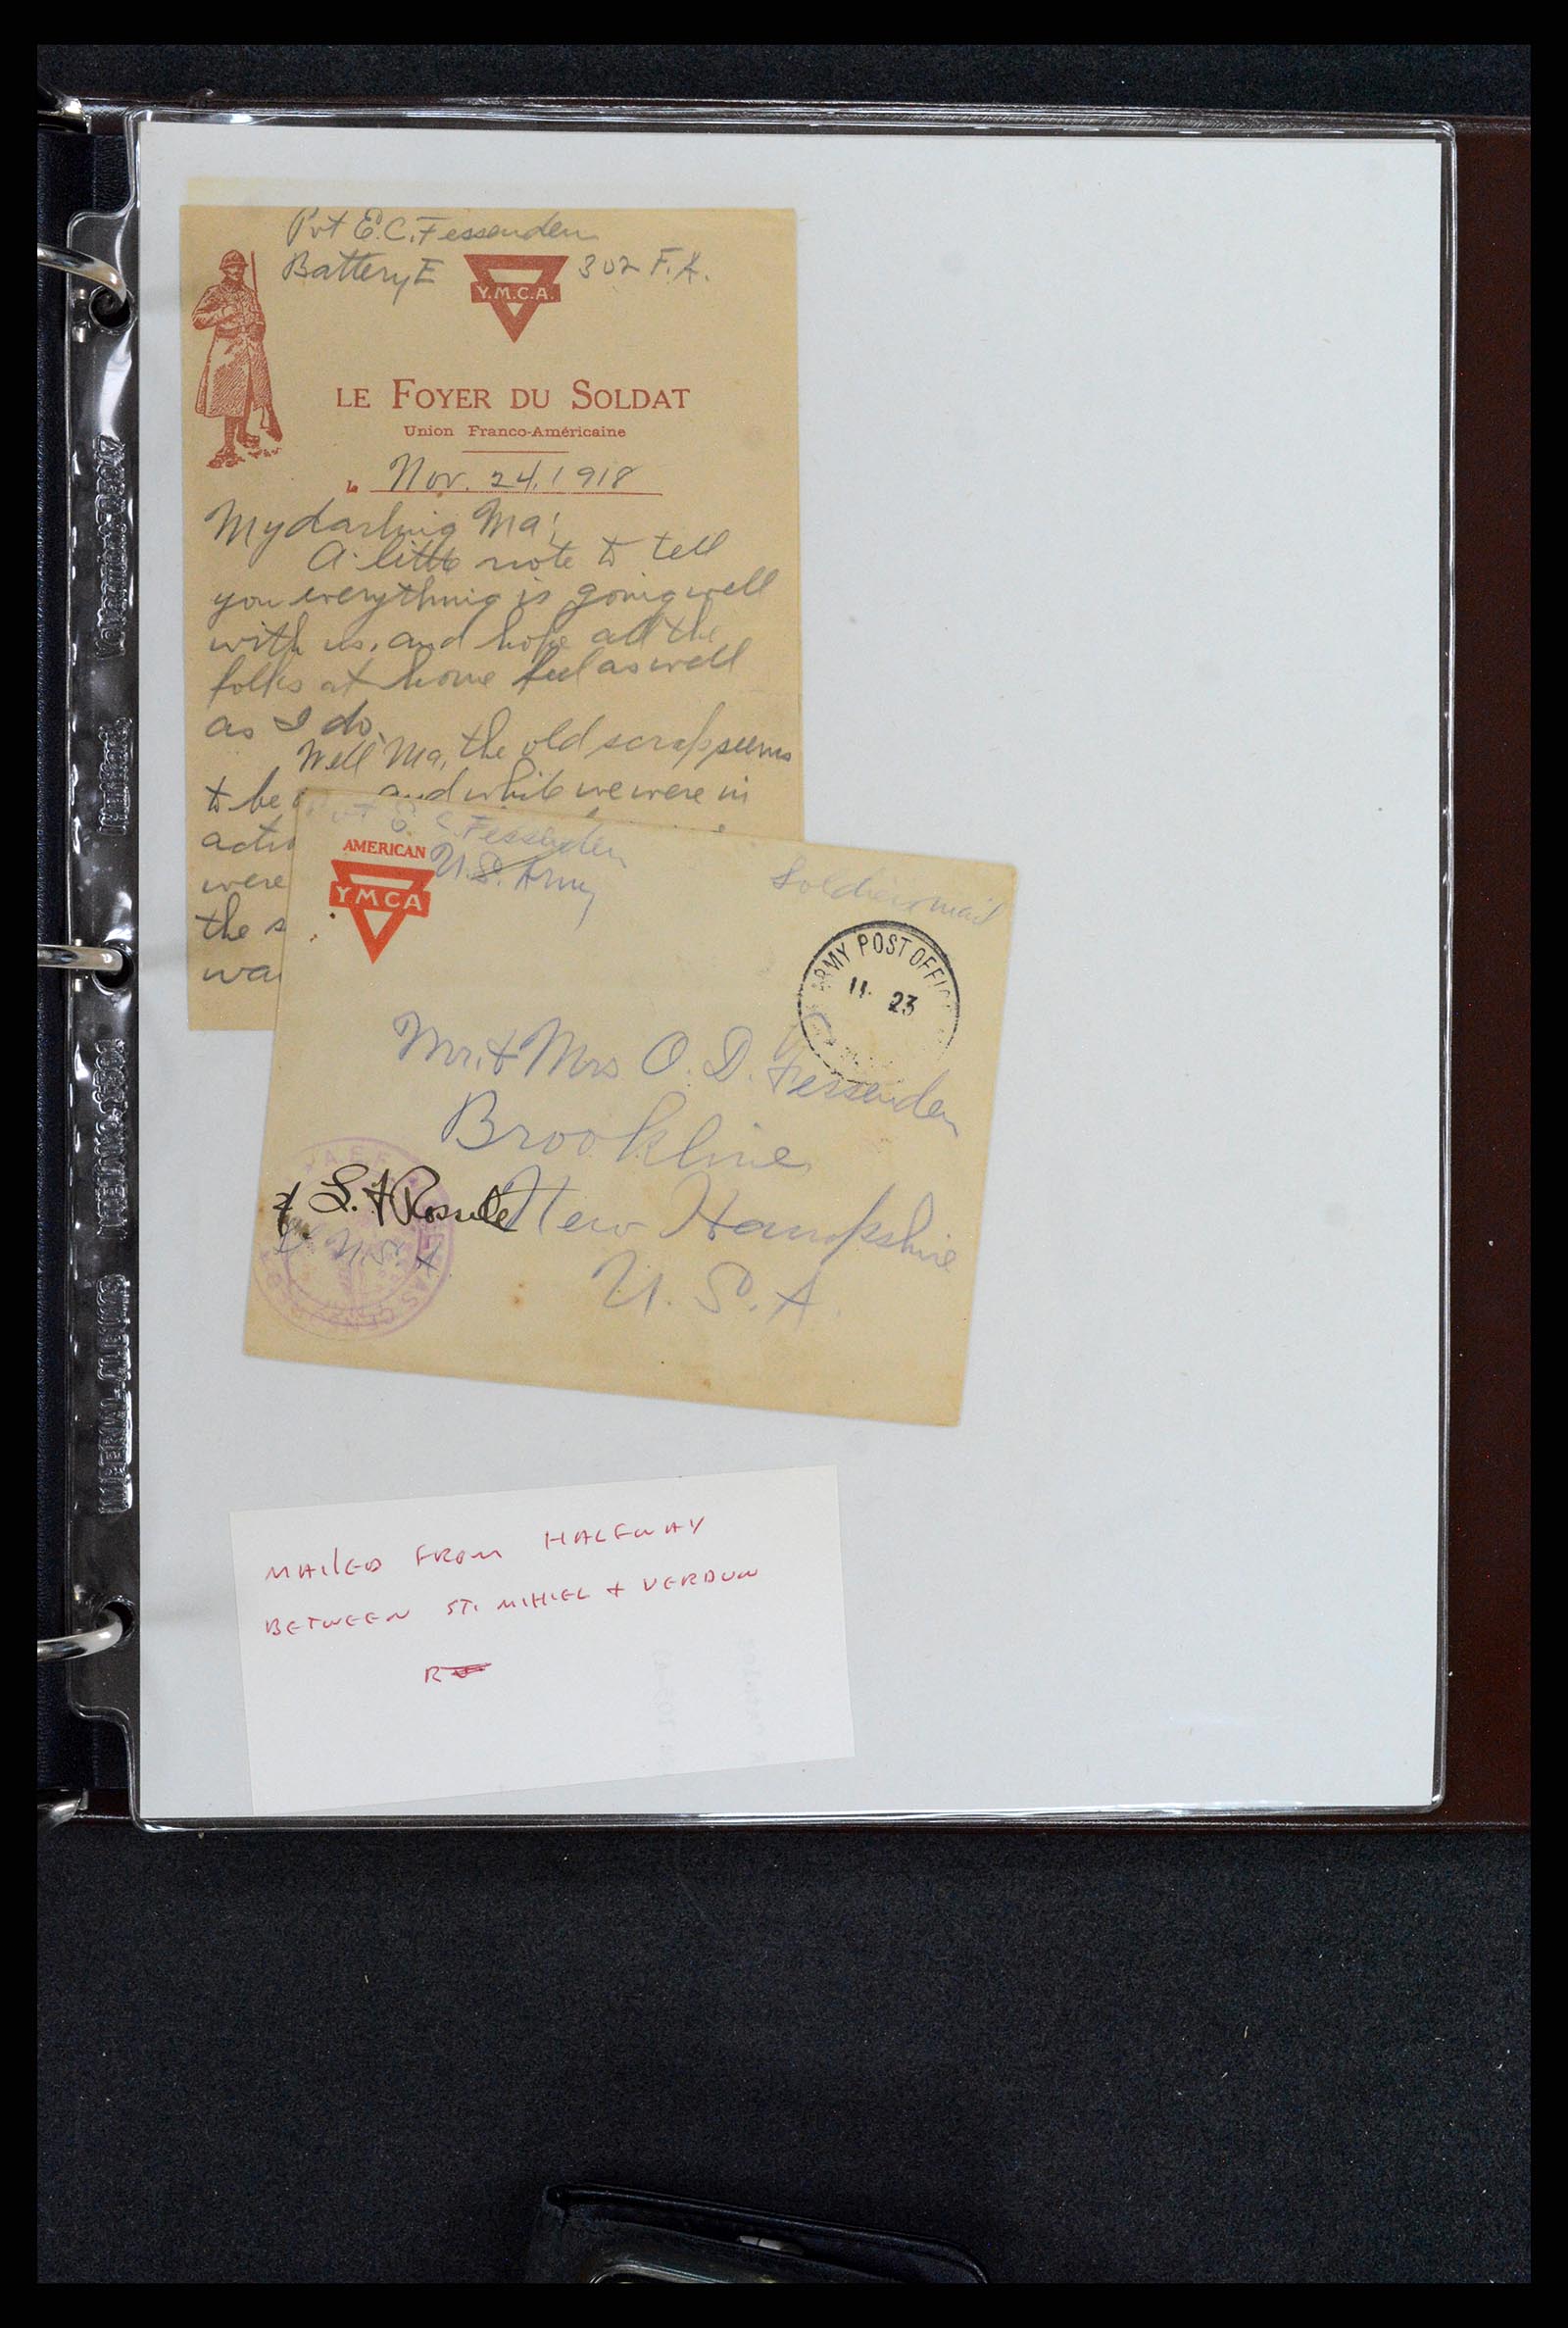 Pvt E.C. Fessenden
Battery E 302 F.A.
Y.M.C.A.
LE FOYER DU SOLDAT
Union Franco-Américaine
le Nov. 24, 1918
My darling Ma;
A little note to tell
you everything is going well
with us, and hope all the
folks at home feel as well
as I do.
Well Ma, the old scrap seems
to be and while we were in
were
the s
wa
Pvt E. C. Fessenden
U.S. Army
AMERICAN
YMCA
Soldiers mail
ARMY POST OFFIC
11 23
Mr. & Mrs O. D. Fessenden
Brookline
New Hampshire
U. S. A.
A.E.F.
MAILED FROM HALFWAY
BETWEEN ST. MIHIEL + VERDUN
R